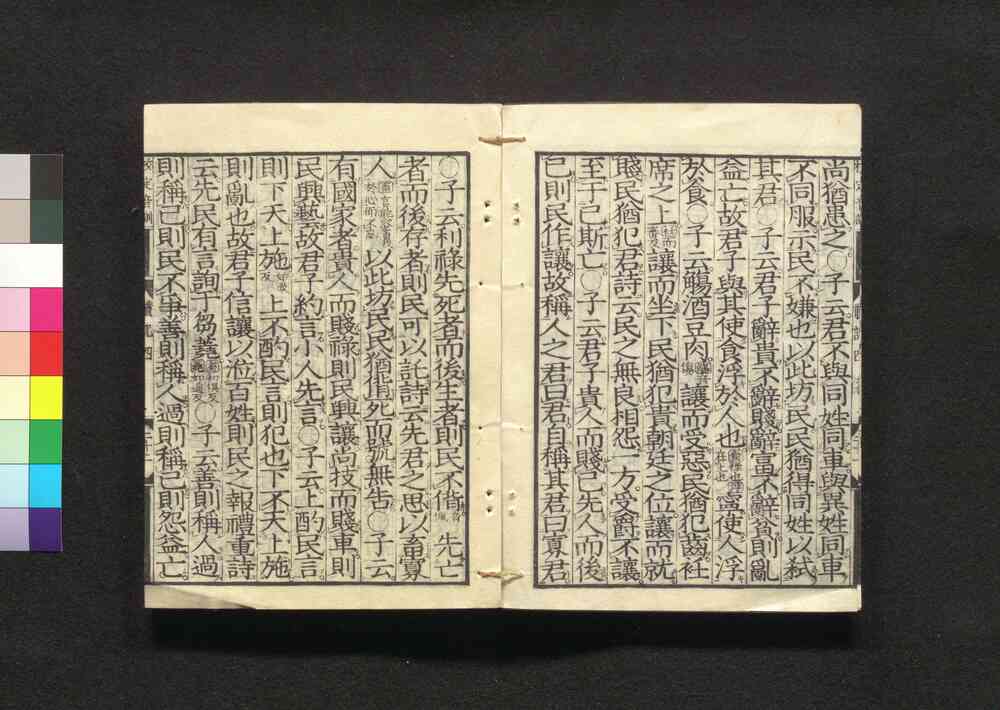 尚猶患之○子云君不與同姓同車與異姓同車
不同服示民不嫌也以此坊民民猶得同姓以弑
其君○子云君子辭貴不辭賤辭富不辭貧則亂
益亡故君子與其使食浮於人也寧使人浮
於食○子云觴酒豆肉讓而受惡民猶犯齒衽
席之上讓而坐下民猶犯貴朝廷之位讓而就
賤民猶犯君詩云民之無良相怨一方受爵不讓
至于己斯亡○子云君子貴人而賤己先人而後
己則民作讓故稱人之君曰君自稱其君曰寡君
○子云利祿先死者而後生者則民不偝先亡
者而後存者則民可以託詩云先君之思以畜寡
人以此坊民民猶偝死而號無告○子云
有國家者貴人而賤祿則民興讓尚技而賤車則
民興藝故君子約言小人先言○子云上酌民言
則下天上施上不酌民言則犯也下不天上施
則亂也故君子信讓以涖百姓則民之報禮重詩
云先民有言詢于芻蕘○子云善則稱人過
則稱己則民不爭善則稱人過則稱己則怨益亡